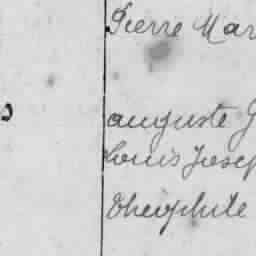 Pierre Mar
auguste G
Louis Josep
Théophile